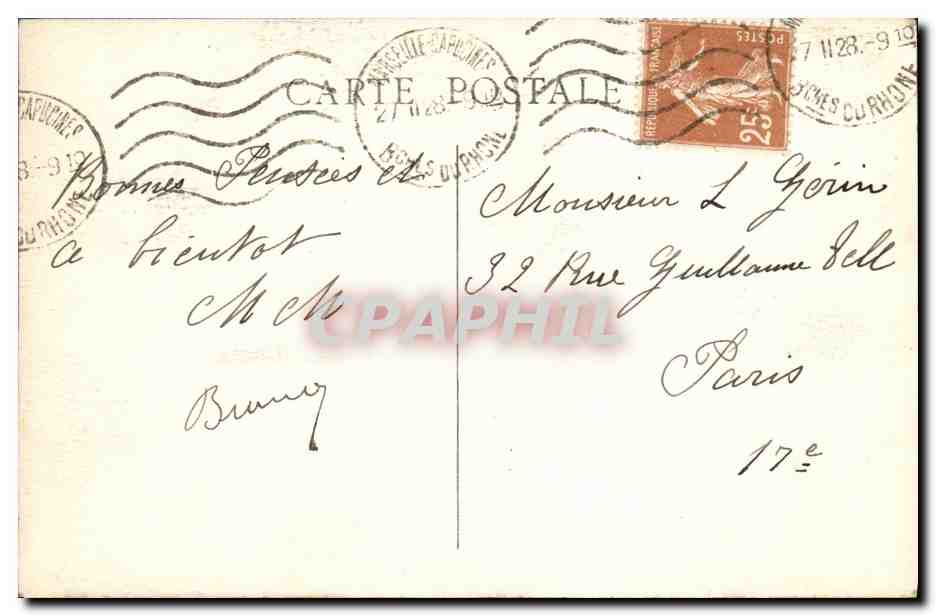 CARTE POSTALE
MARSEILLE-CAPUCINES
27 II 28.-9 10
BCHES DU RHONE
CAPUCINES
8.-9 10
DU RHONE
7 II 28.-9 10
BCHES DU RHONE
RÉPUBLIQUE FRANÇAISE
POSTES
25c
Bonnes Pensées et
a bientot
M M
Monsieur L Gérin
32 Rue Guillaume Tell
Paris
17e
CPAPHIL